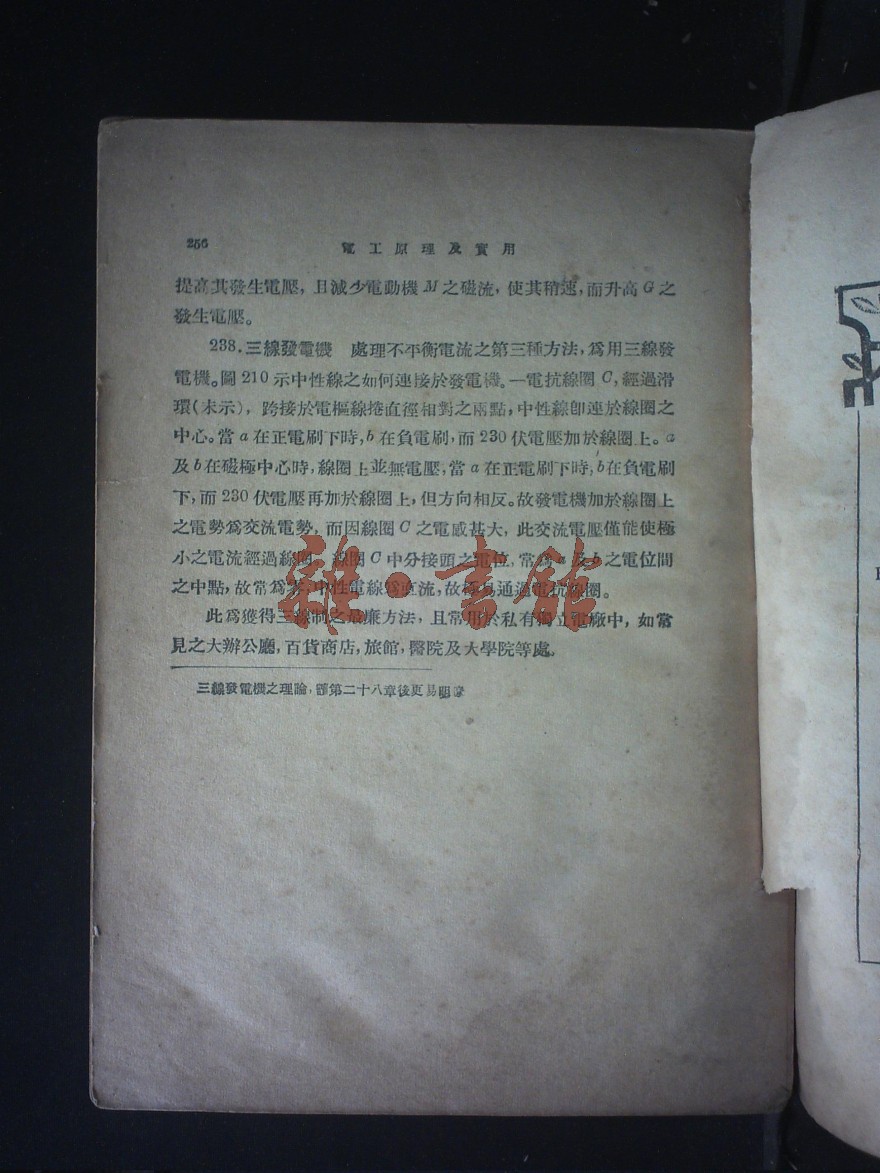 256
電工原理及實用
提高其發生電壓，且減少電動機 M 之磁流，使其稍速，而升高 G 之
發生電壓。
238．三線發電機　處理不平衡電流之第三種方法，爲用三線發
電機。圖 210 示中性線之如何連接於發電機。一電抗線圈 C，經過滑
環(未示)，跨接於電樞線捲直徑相對之兩點，中性線卽連於線圈之
中心。當 a 在正電刷下時，b 在負電刷，而 230 伏電壓加於線圈上。a
及 b 在磁極中心時，線圈上並無電壓，當 a 在正電刷下時，b 在負電刷
下，而 230 伏電壓再加於線圈上，但方向相反。故發電機加於線圈上
之電勢爲交流電勢，而因線圈 C 之電感甚大，此交流電壓僅能使極
小之電流經過線圈。線圈 C 中分接頭之電位，常爲 a 及 b 之電位間
之中點，故常爲零，中性電線爲直流，故極易通過電抗線圈。
此爲獲得三線制之最廉方法，且常用於私有獨立電廠中，如常
見之大辦公廳，百貨商店，旅館，醫院及大學院等處。
三線發電機之理論，讀第二十八章後更易明瞭
雜·書館